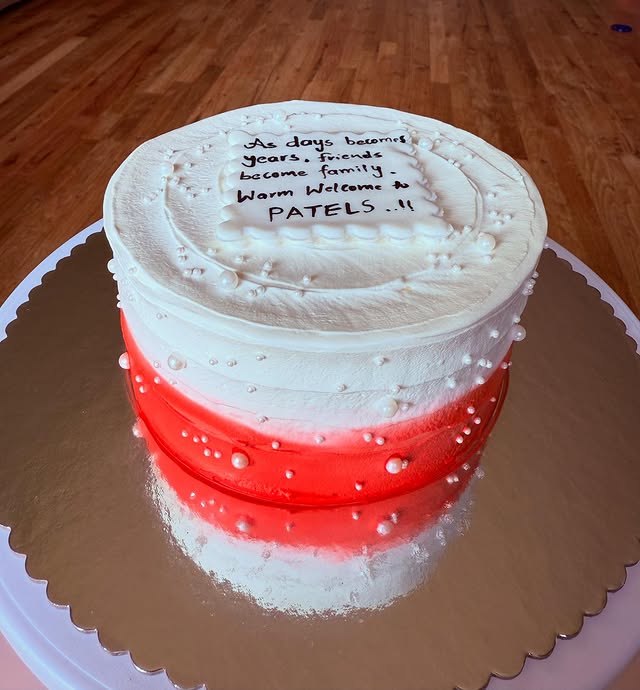 As days becomes
years. friends
become family.
Warm Welcome to
PATELS ..!!